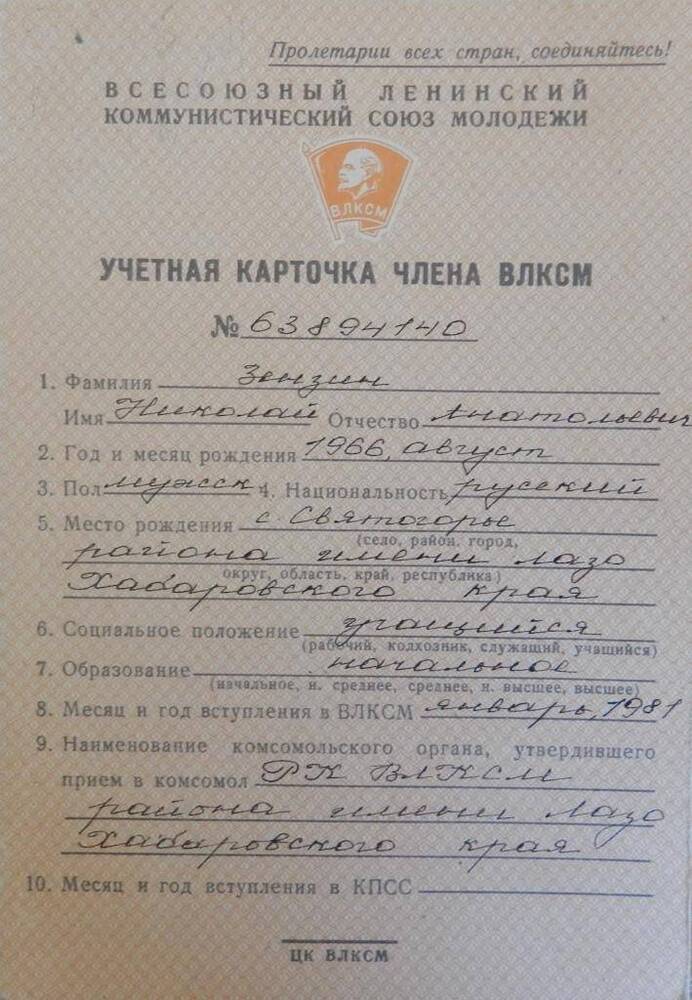 Пролетарии всех стран, соединяйтесь!
ВСЕСОЮЗНЫЙ ЛЕНИНСКИЙ
КОММУНИСТИЧЕСКИЙ СОЮЗ МОЛОДЕЖИ
ВЛКСМ
УЧЕТНАЯ КАРТОЧКА ЧЛЕНА ВЛКСМ
№ 63894140
1. Фамилия Зензин
Имя Николай Отчество Анатольевич
2. Год и месяц рождения 1966, август
3. Пол мужск 4. Национальность русский
5. Место рождения с. Святогорье
(село, район, город,
района имени Лазо
округ, область, край, республика)
Хабаровского края
6. Социальное положение учащийся
(рабочий, колхозник, служащий, учащийся)
7. Образование начальное
(начальное, н. среднее, среднее, н. высшее, высшее)
8. Месяц и год вступления в ВЛКСМ январь, 1981
9. Наименование комсомольского органа, утвердившего
прием в комсомол РК ВЛКСМ
района имени Лазо
Хабаровского края
10. Месяц и год вступления в КПСС
ЦК ВЛКСМ